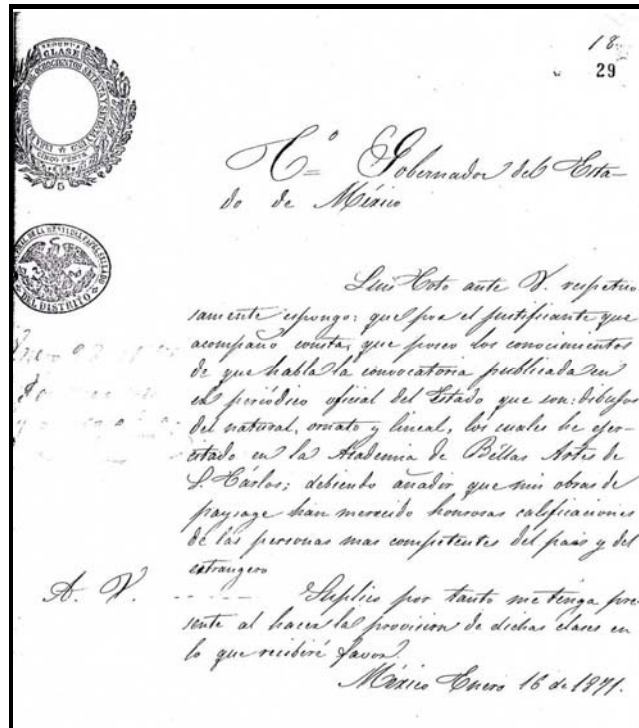 18
29
SEGUNDA
CLASE
CINCO PESOS
5
DEL DISTRITO
C.º Gobernador del Esta-
do de México
Luis Coto ante V. respetuo
samente espongo: que por el justificante que
acompaño consta, que poseo los conocimientos
de que habla la convocatoria publicada en
el periódico oficial del Estado que son: dibujos
del natural, ornato y lineal, los cuales he ejer-
citado en la Academia de Bellas Artes de
S. Cárlos; debiendo añadir que mis obras de
paysage han merecido honrosas calificaciones
de las personas mas competentes del pais y del
estrangero
A. V. ----- Suplico por tanto me tenga pre
sente al hacer la provision de dichas clases en
lo que recibiré favor.
México Enero 16 de 1871.